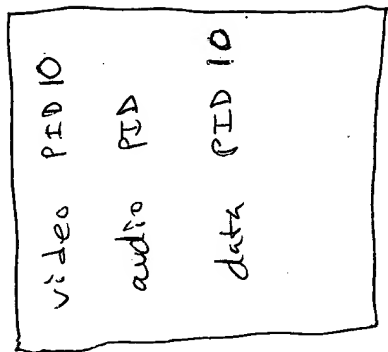 video PID 10
audio PID
data PID 10